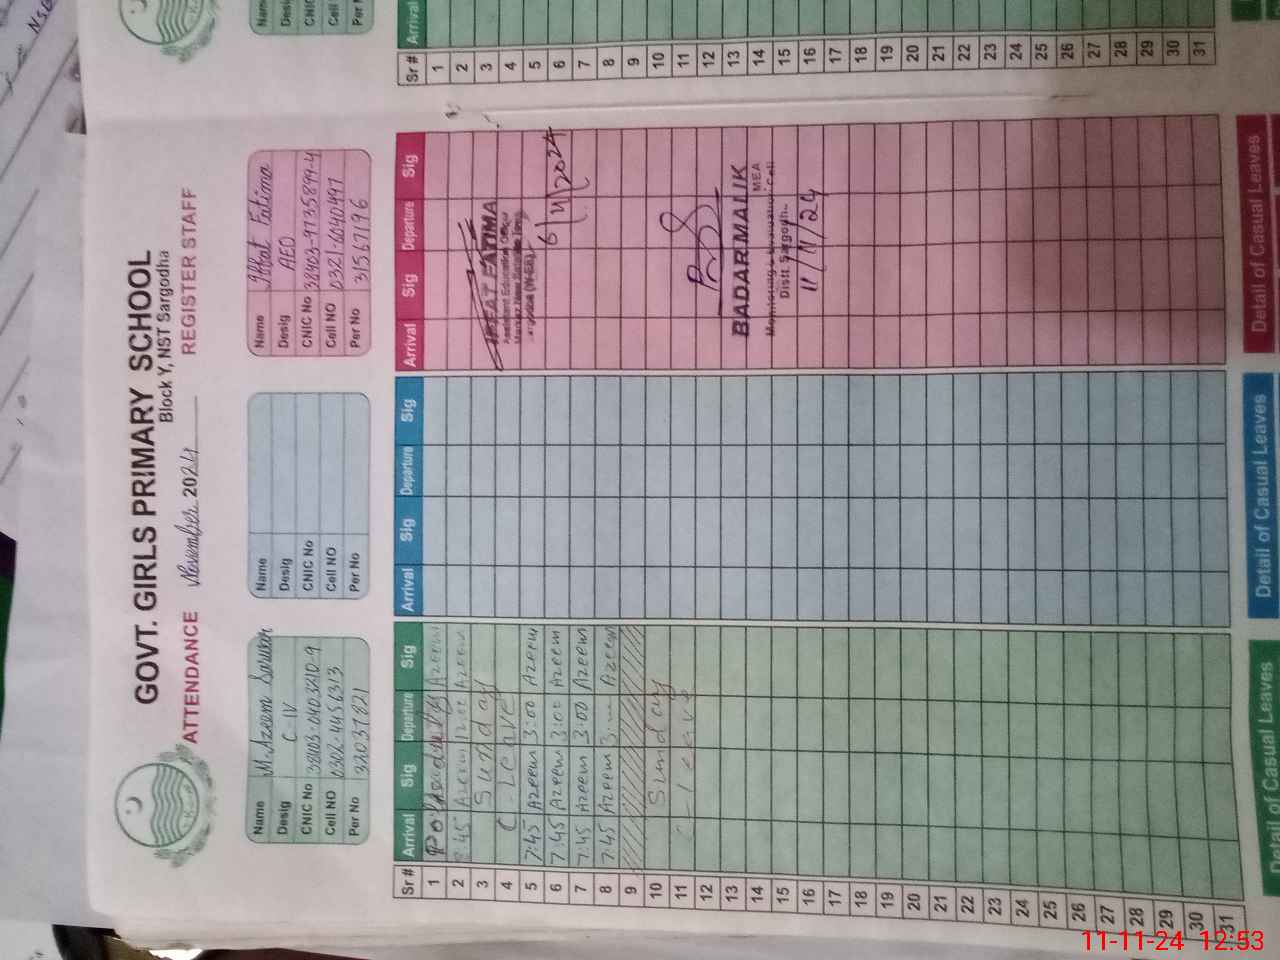 GOVT. GIRLS PRIMARY SCHOOL
Block Y, NST Sargodha
ATTENDANCE November 2024 REGISTER STAFF
Name M. Azeem Sarwar
Desig C-IV
CNIC No 38403-0403210-9
Cell NO 0302-4456313
Per No 32037821
Name
Desig
CNIC No
Cell NO
Per No
Name Iffat Fatima
Desig AEO
CNIC No 38403-9735899-4
Cell NO 0321-6040497
Per No 31567196
Sr# Arrival Sig Departure Sig Arrival Sig Departure Sig Arrival Sig Departure Sig
1 Azeem
2 Azeem 12:00 Azeem
3 Sunday
4 C-Leave
5 7:45 Azeem 3:00 Azeem
6 7:45 Azeem 3:00 Azeem
7 7:45 Azeem 3:00 Azeem
8 7:45 Azeem Azeem
9
10 Sunday
11 Leave
12
13
14
15
16
17
18
19
20
21
22
23
24
25
26
27
28
29
30
31
IFFAT FATIMA
Assistant Education Officer
6/11/2024
BADAR MALIK
MEA
Monitoring & Evaluation Cell
Distt. Sargodha
11/11/24
Detail of Casual Leaves
Detail of Casual Leaves
Detail of Casual Leaves
Sr# Arrival
1
2
3
4
5
6
7
8
9
10
11
12
13
14
15
16
17
18
19
20
21
22
23
24
25
26
27
28
29
30
31
Name
Desig
CNIC
Cell
Per
11-11-24 12:53